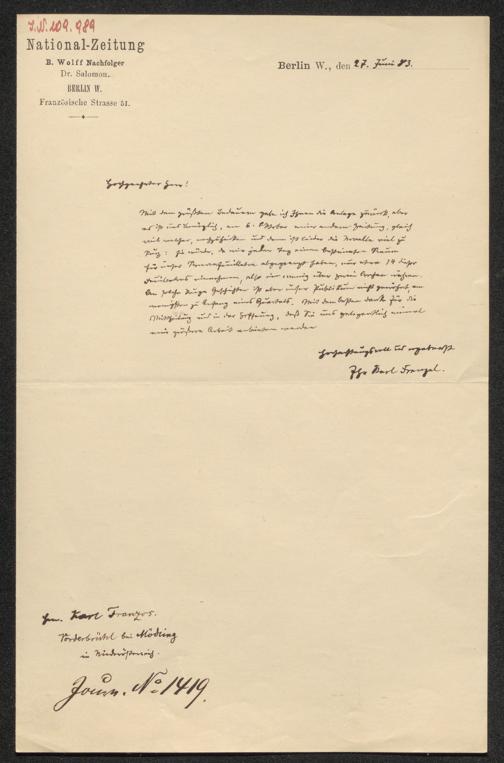 I.N. 109.989
National-Zeitung
B. Wolff Nachfolger
Dr. Salomon.
BERLIN W.
Französische Strasse 51.
Berlin W., den 27. Juni 83.
Hochgeehrter Herr!
Mit dem größten Bedauern gebe ich Ihnen die Anlage zurück, aber
es ist uns unmöglich, am 6. Oktober einer andern Zeitung, gleich
und dann ist leider die Novelle viel zu
kurz: Sie würde, da wir jeden Tag einen bestimmten Raum
für unser abgegrenzt haben, nur etwa 14 dieser
Feuilletons, also ein wenig über zwei Wochen währen.
An solche kurze Geschichten ist aber unser Publikum nicht gewöhnt, am
wenigsten zu Anfang eines Quartals. Mit dem besten Dank für die
Mittheilung und in der Hoffnung, daß Sie uns gelegentlich einmal
eine größere Arbeit anbieten werden
hochachtungsvoll und ergebenst
Ihr Karl Frenzel.
Hrn. Karl Franzos.
Vorderbrühl bei Mödling
in Niederösterreich.
Journ. No 1419.